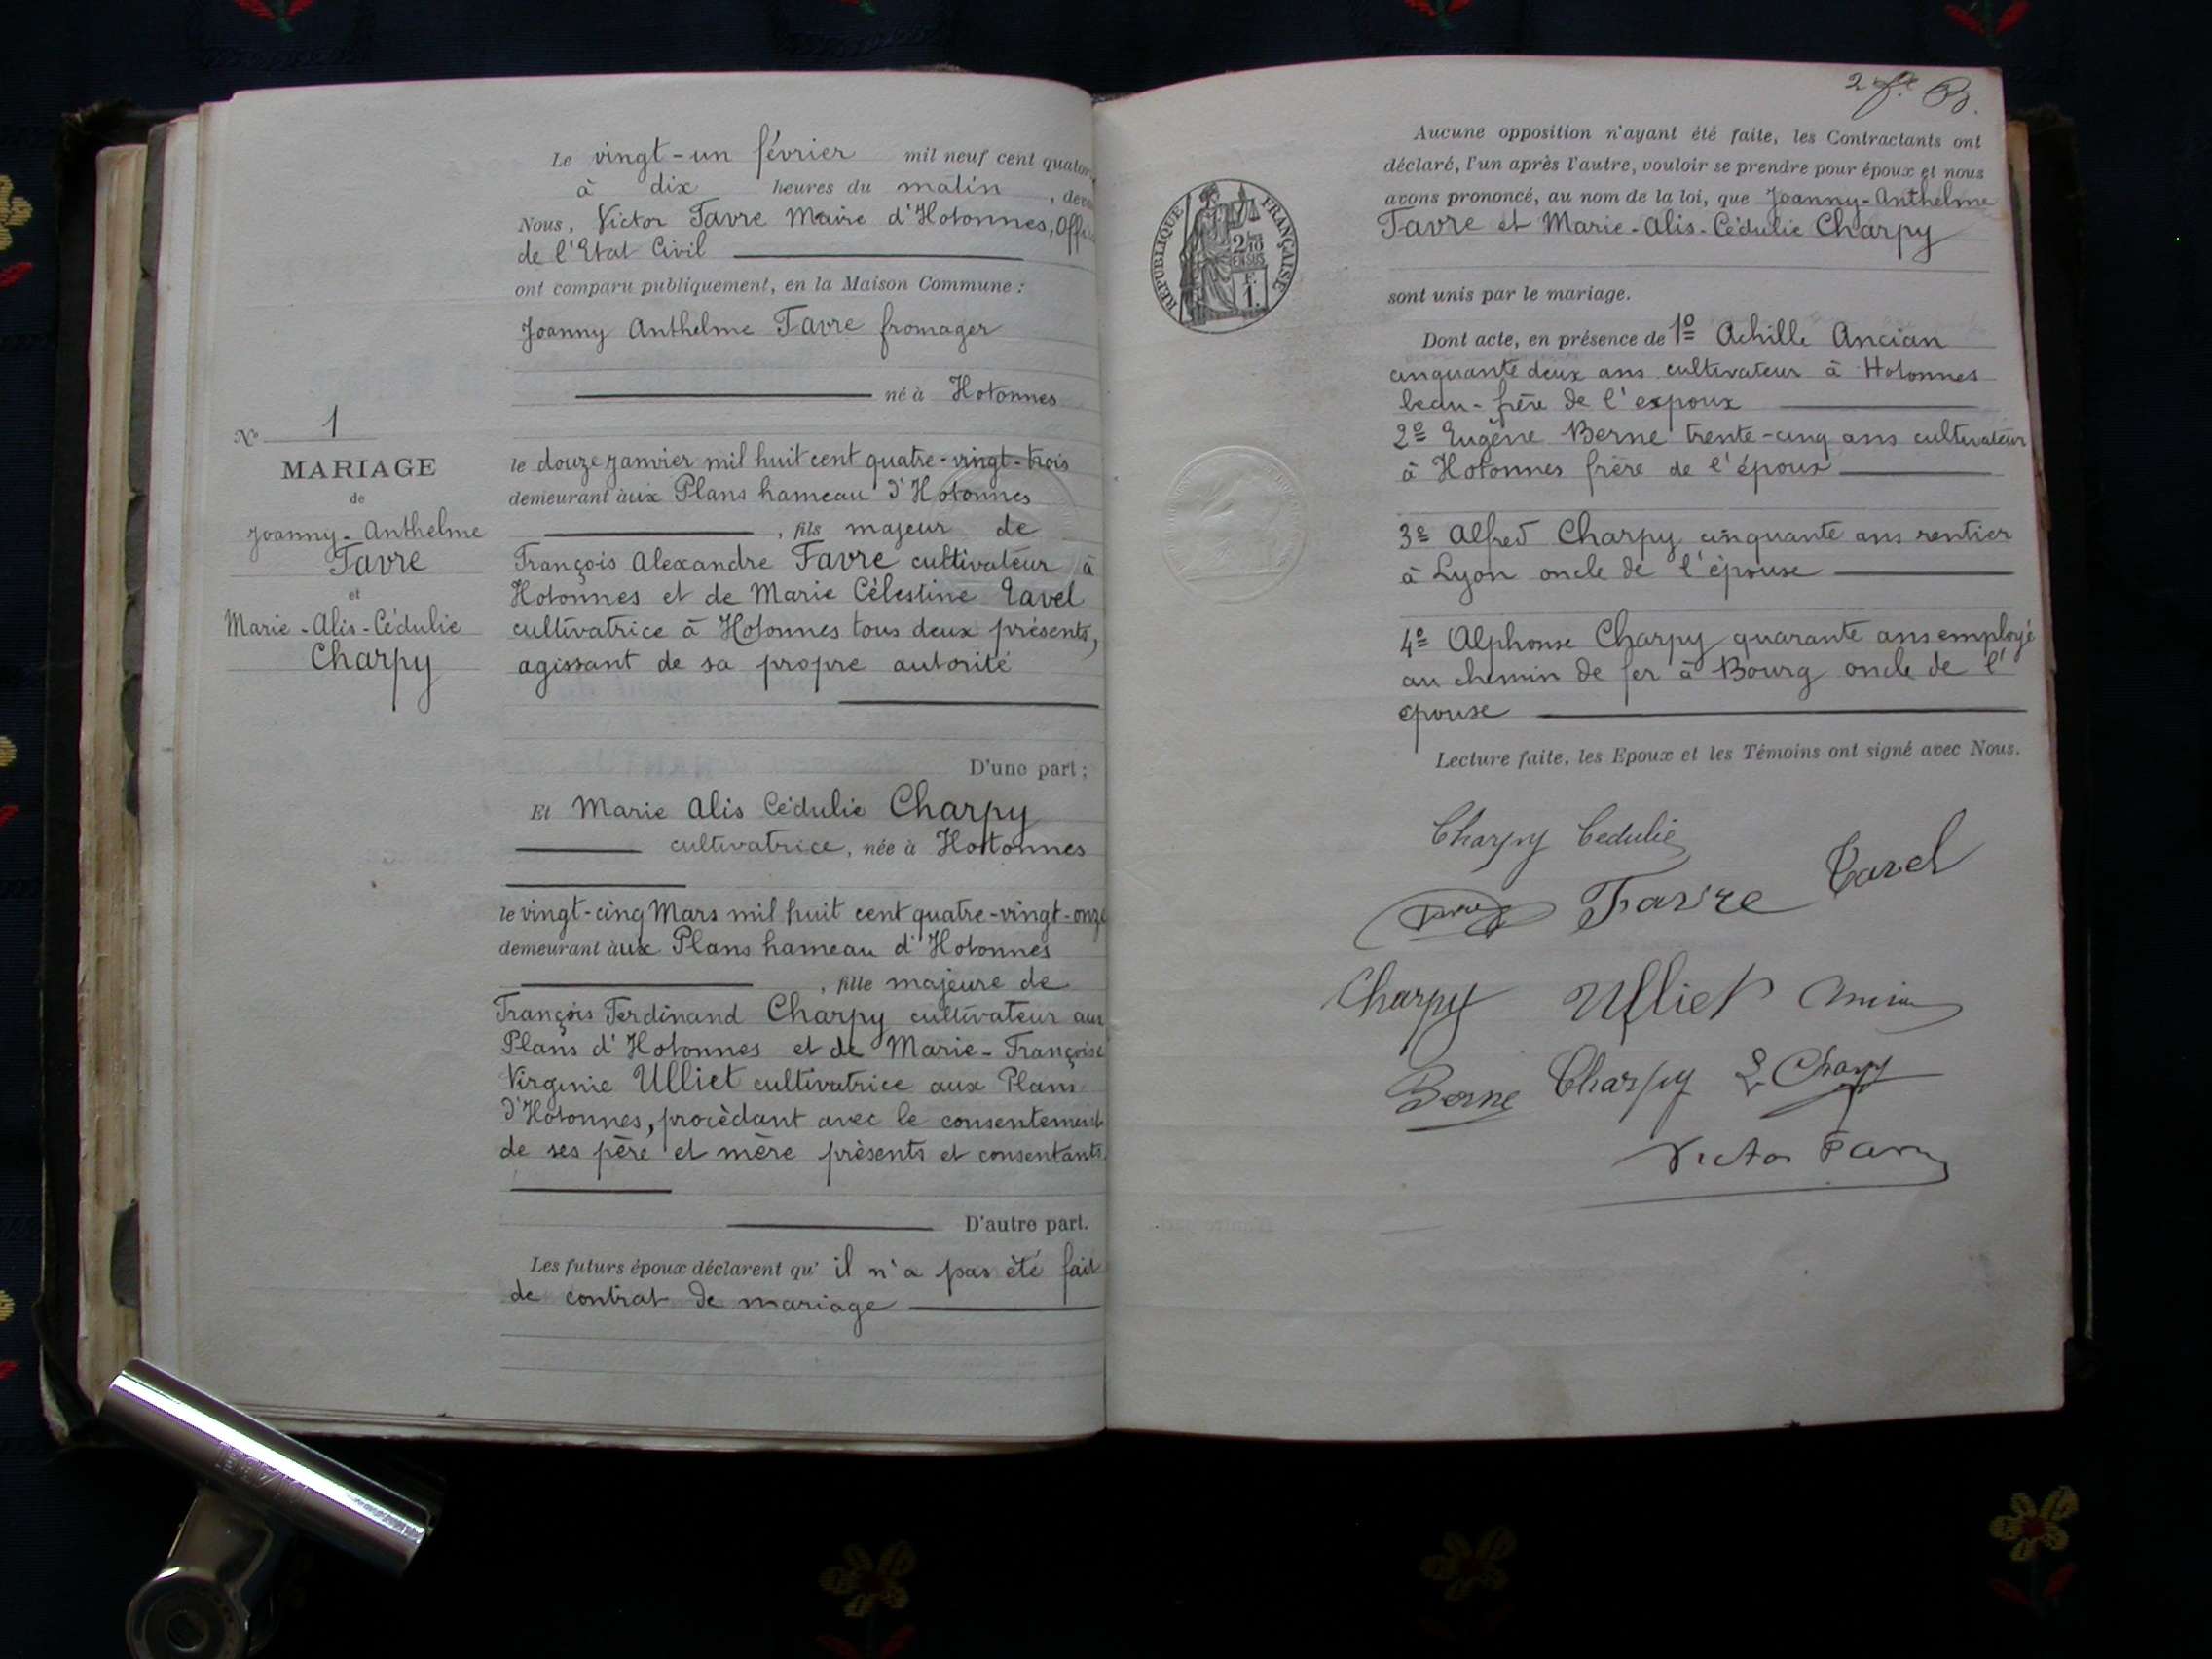 Le vingt-un février mil neuf cent quator
à dix heures du matin, deva
Nous, Victor Favre Maire d'Hotonnes, Offi
de l'Etat Civil
ont comparu publiquement, en la Maison Commune :
Joanny Anthelme Favre fromager
né à Hotonnes
le douze janvier mil huit cent quatre-vingt-trois
demeurant àux Plans hameau d'Hotonnes
, fils majeur de
François Alexandre Favre cultivateur à
Hotonnes et de Marie Célestine Tavel
cultivatrice à Hotonnes tous deux présents,
agissant de sa propre autorité
D'une part ;
Et Marie Alis Cédulie Charpy
cultivatrice, née à Hottonnes
le vingt-cinq Mars mil huit cent quatre-vingt-onze
demeurant àux Plans hameau d'Hotonnes
, fille majeure de
François Ferdinand Charpy cultivateur aux
Plans d'Hotonnes et de Marie-Françoise
Virginie Ulliet cultivatrice aux Plans
d'Hotonnes, procèdant avec le consentement
de ses père et mère présents et consentants
D'autre part.
Les futurs époux déclarent qu' il n'a pas été fait
de contrat de mariage
N° 1
MARIAGE
de
Joanny-Anthelme
Favre
et
Marie-Alis-Cédulie
Charpy
2
Aucune opposition n'ayant été faite, les Contractants ont
déclaré, l'un après l'autre, vouloir se prendre pour époux et nous
avons prononcé, au nom de la loi, que Joanny-Anthelme
Favre et Marie-Alis-Cédulie Charpy
sont unis par le mariage.
Dont acte, en présence de 1º Achille Ancian
cinquante deux ans cultivateur à Hotonnes
beau-frère de l'expoux
2º Eugène Berne trente-cinq ans cultivateur
à Hotonnes frère de l'époux
3º Alfred Charpy cinquante ans rentier
à Lyon oncle de l'épouse
4º Alphonse Charpy quarante ans employé
au chemin de fer à Bourg oncle de l'
épouse
Lecture faite, les Epoux et les Témoins ont signé avec Nous.
Charpy Cedulie
Favre Tavel
Charpy Ulliet
Berne Charpy Charpy
Victor Favre
REPUBLIQUE FRANÇAISE
2/10
EN SUS
F.
1.